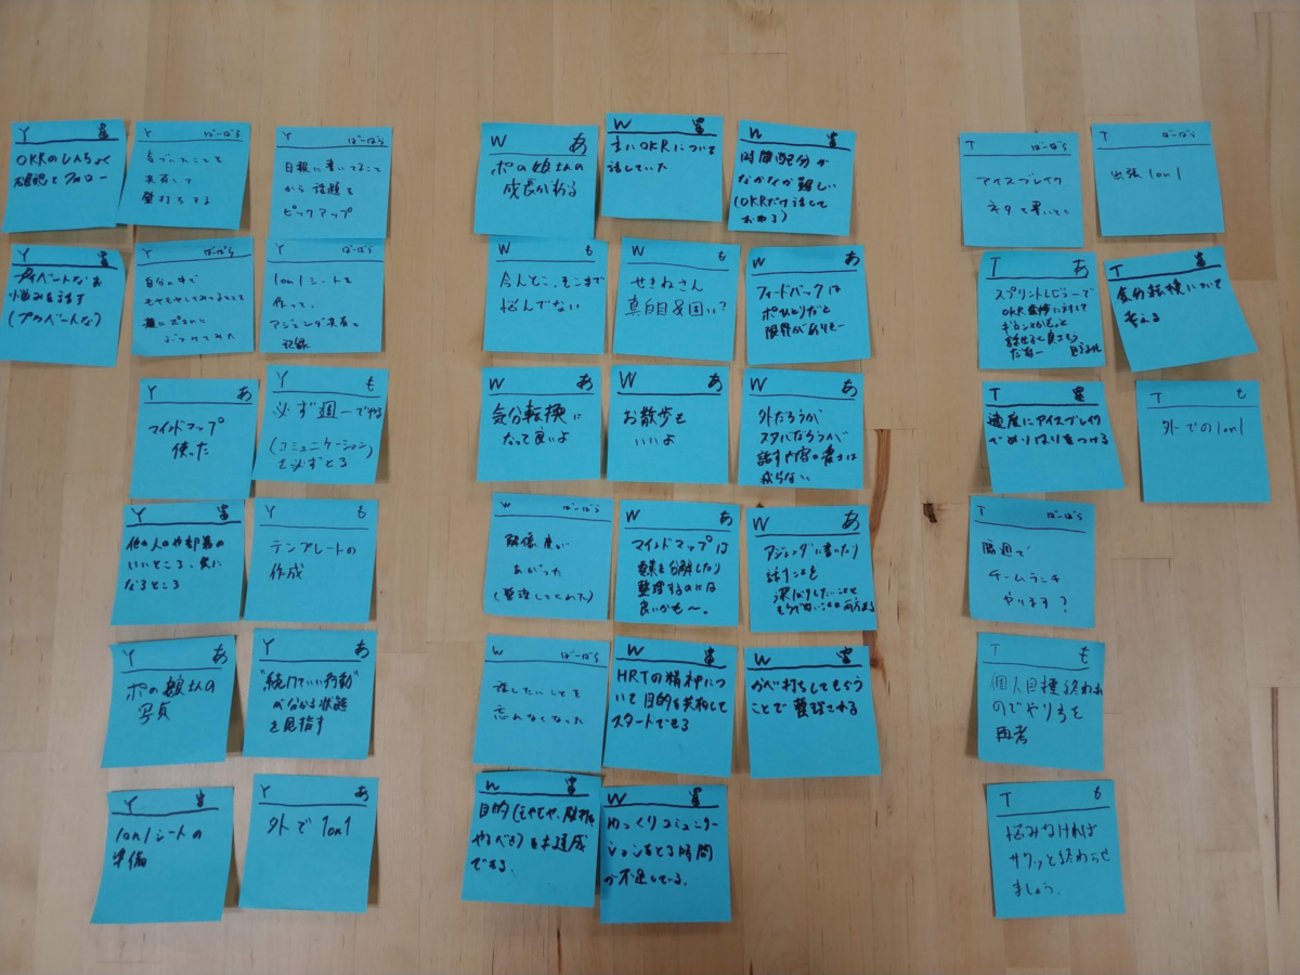 Y
OKRのしんちょく
確認とフォロー
Y ばーばら
気づいたことを
共有して
壁打ちする
Y ばーばら
日報に書いてること
から話題を
ピックアップ
Y
プライベートなお
悩みを話す
(プライベートな)
Y ばーばら
自分の中で
ぶつけてみた
Y ばーばら
1on1シートを
作って、
アジェンダ共有と
記録
Y あ
マインドマップ
使った
Y も
必ず週一でやる
(コミュニケーション)
を必ずとる
Y
他の人や部署の
いいところ、気に
なるところ
Y も
テンプレートの
作成
Y あ
ポの娘さんの
写真
Y あ
"続けていい行動"
が分かる状態
を目指す
Y
1on1シートの
準備
Y あ
外で1on1
W あ
ポの娘さんの
成長がわかる
W
主にOKRについて
話していた
W
時間配分が
なかなか難しい
(OKRだけ話して
おわる)
W も
今んとこ、そこまで
悩んでない
W も
せきねさん
真面目&固い?
W あ
フィードバックは
ポひとりだと
限界がありそー
W あ
気分転換に
なって良いよ
W あ
お散歩も
いいよ
W あ
外だろうが
スタバだろうが
話す内容の濃さは
変らない
W ばーばら
解像度が
あがった
(整理してくれた)
W あ
マインドマップは
要素を分解したり
整理するのには
良いかも〜。
W あ
アジェンダに書いたり
話すことを
深ぼりしたいことと
もうでないことの両方ある
W ばーばら
話したいことを
忘れなくなった
W
HRTの精神につ
いて目的を共有して
スタートできる
W
かべ打ちしてもらう
ことで整理される
W
目的(もやもや、壁打ち
やるべき)を達成
できる。
W
ゆっくりコミュニケー
ションをとる時間
が不足している。
T ばーばら
アイスブレイク
ネタを書いとく
T ばーばら
出張1on1
T あ
スプリントレビューで
OKR進捗に対して
ギロンとかもっと
話せると良さそう
だなー
T
気分転換について
考える
T
適度にアイスブレイク
でめりはりをつける
T も
外での1on1
T ばーばら
隔週で
チームランチ
やります?
T も
個人目標終わった
のでやり方を
再考
T も
悩みなければ
サクッと終わらせ
ましょう。